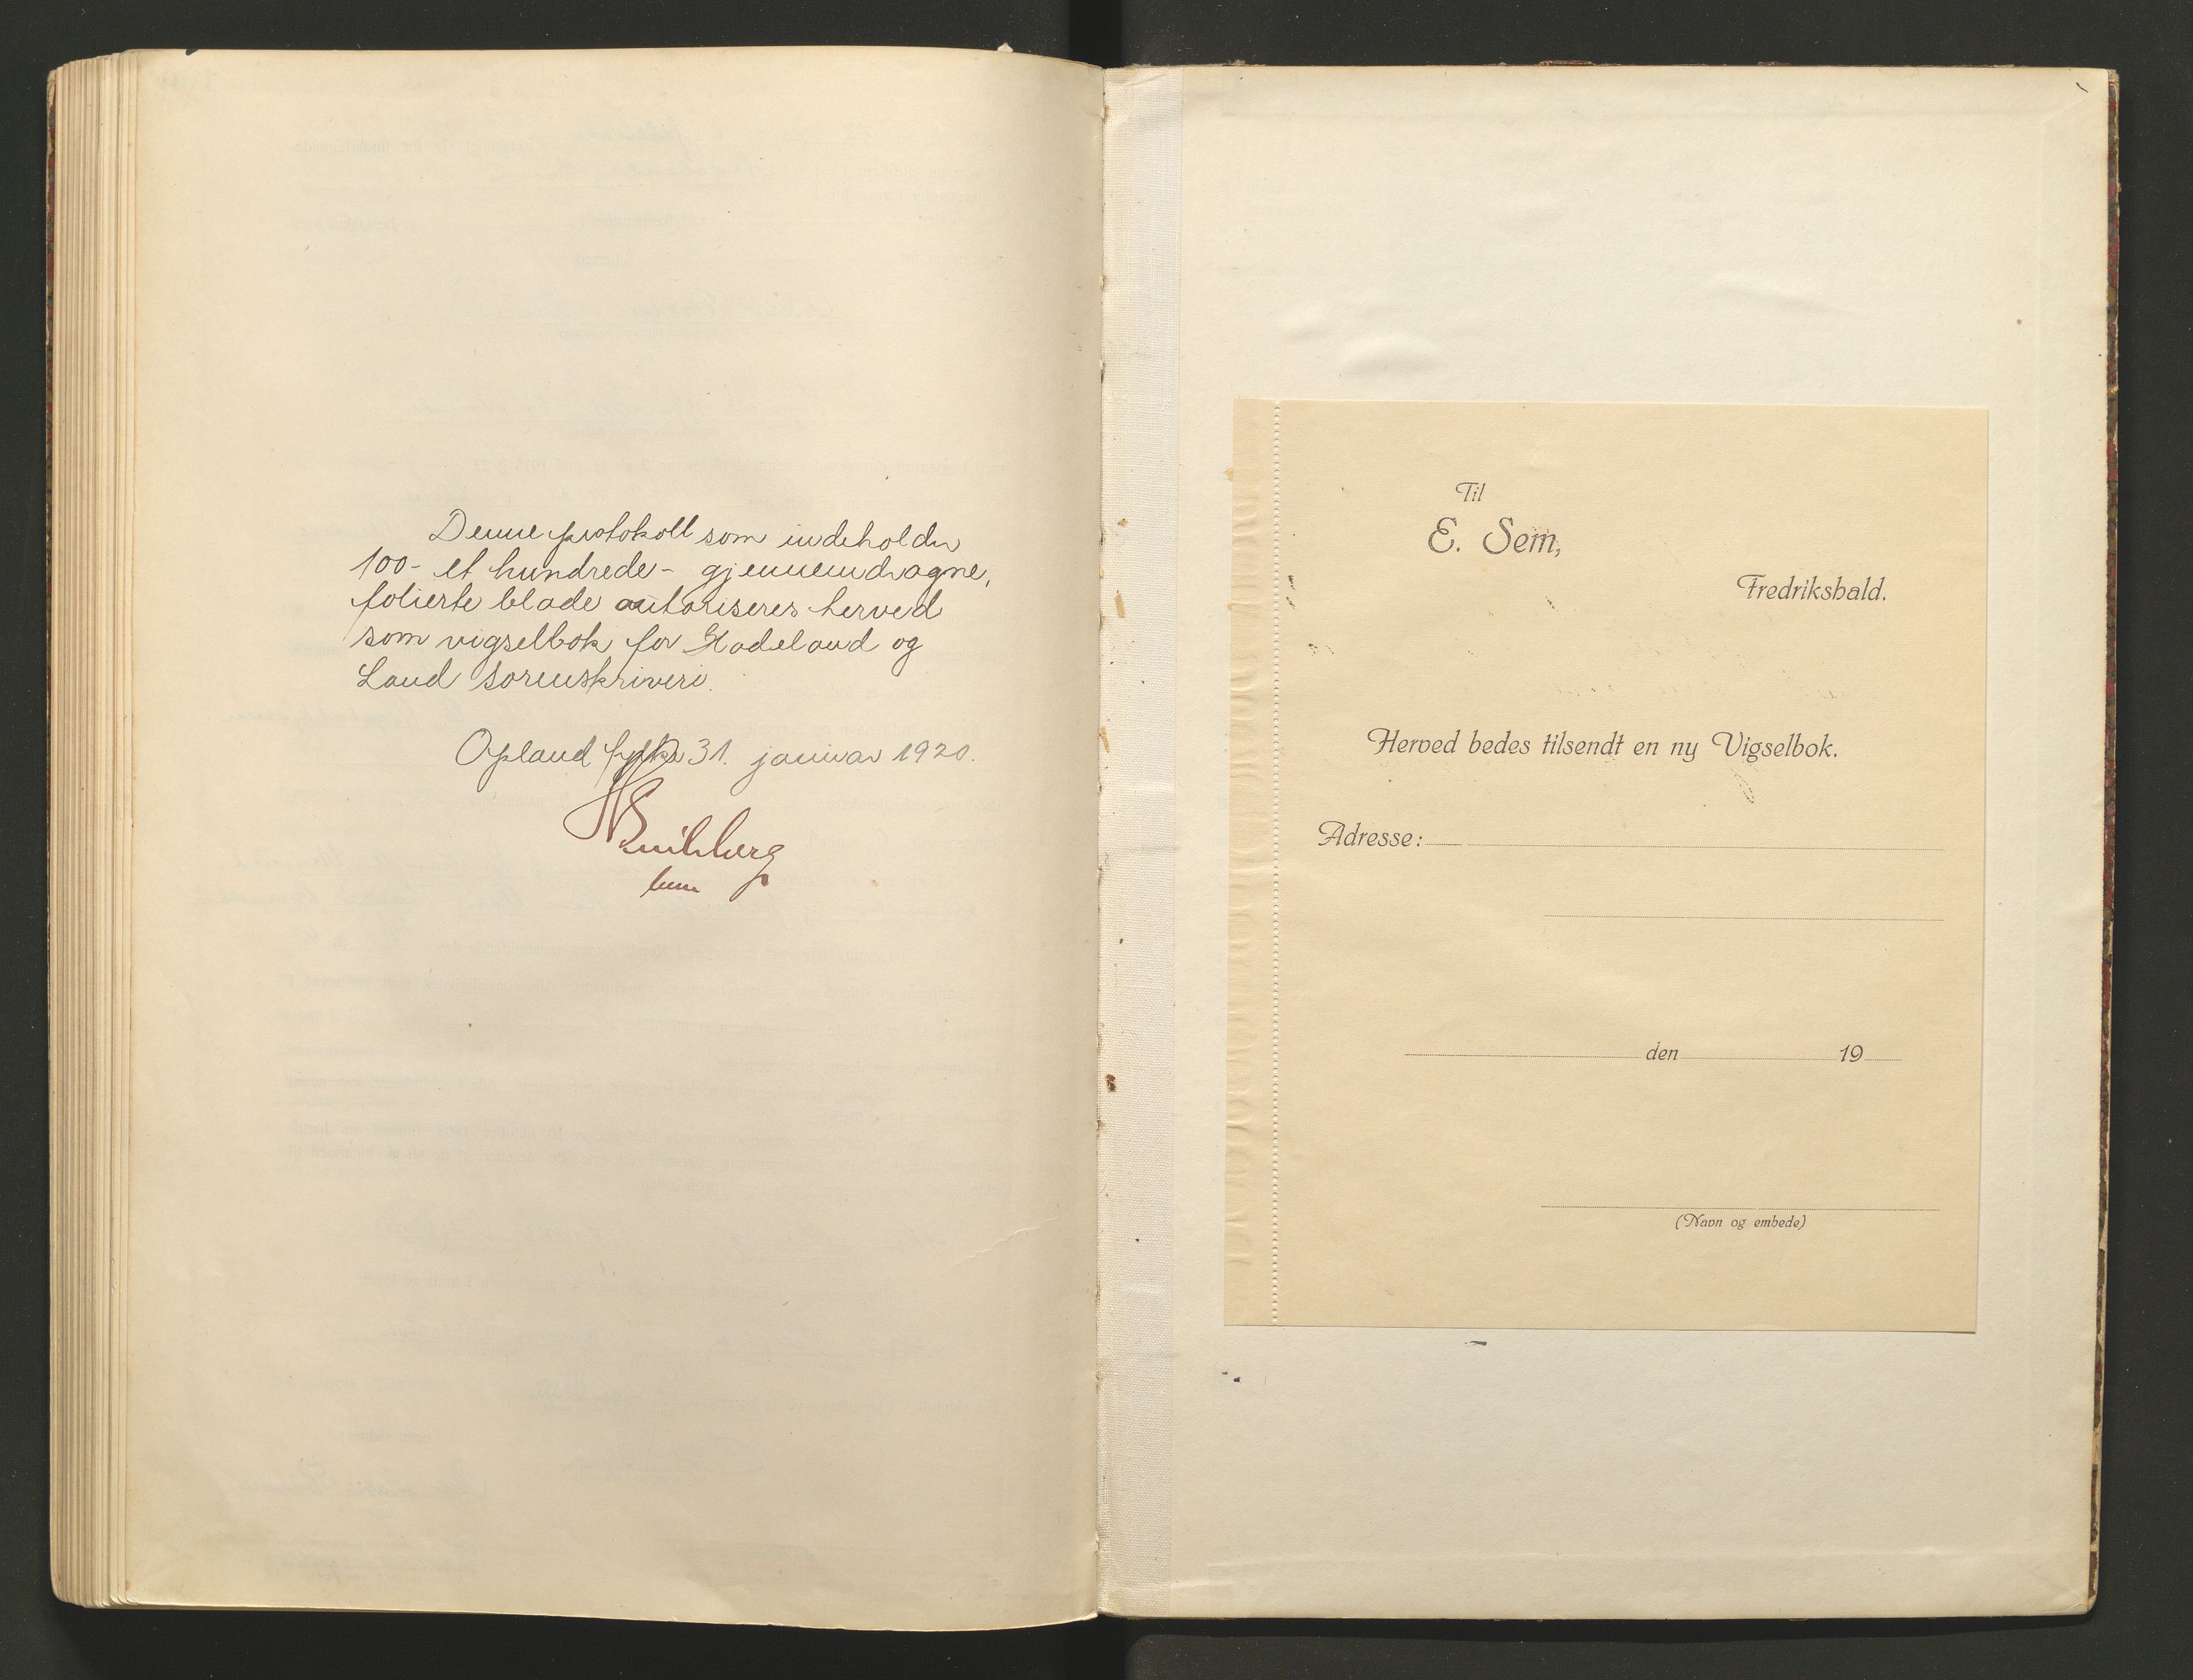 Denne protokoll som indeholder
100 - et hundrede - gjennemdragne,
folierte blade autoriseres herved
som vigselbok for Hadeland og
Land sorenskriveri.
Opland fylke 31. januar 1920.
Til
E. Sem,
Fredrikshald.
Herved bedes tilsendt en ny Vigselbok.
Adresse:
den 19
(Navn og embede)